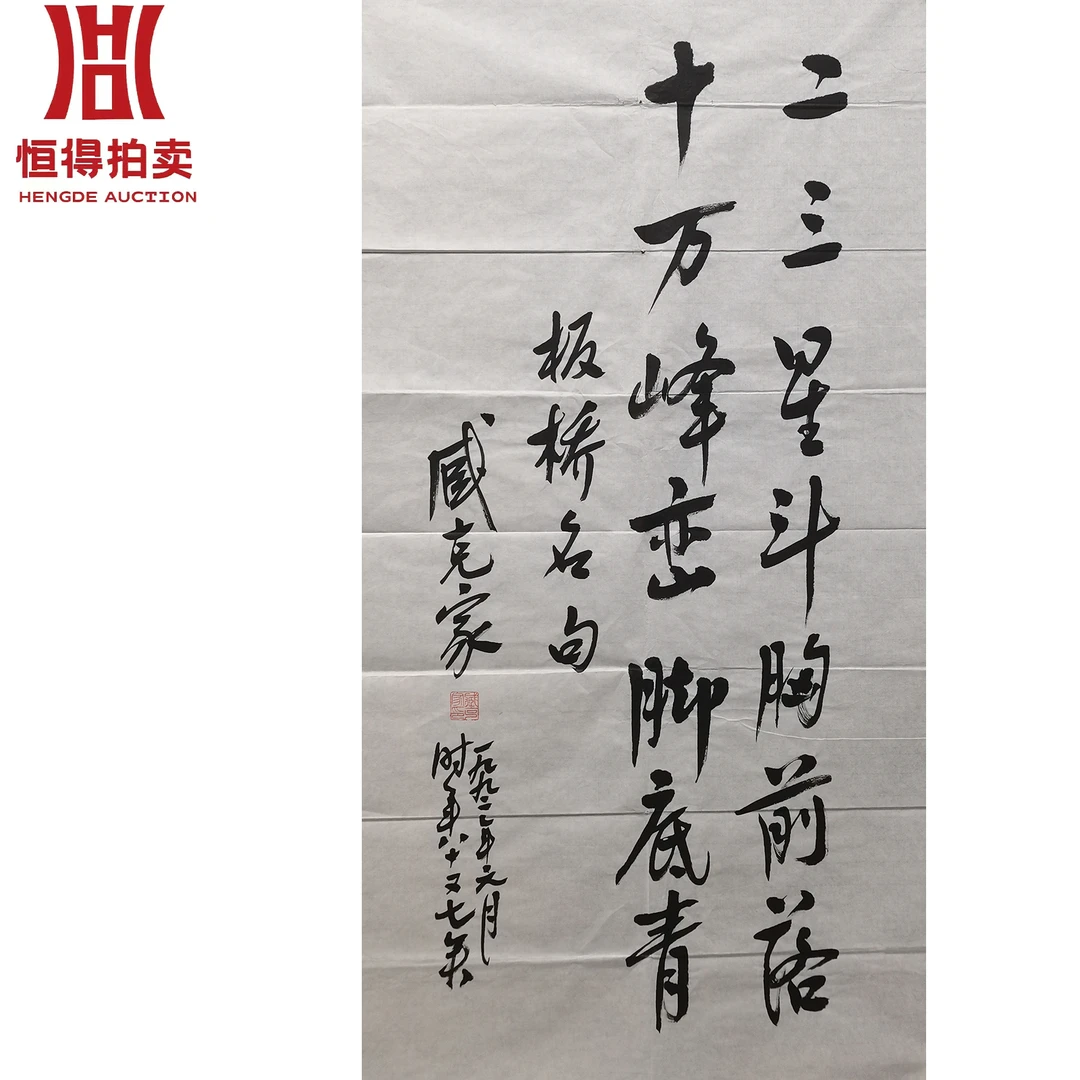 恒得拍卖
HENGDE AUCTION
二三星斗胸前落
十万峰峦脚底青
板桥名句
臧克家
一九九二年元月
时年八十又七矣